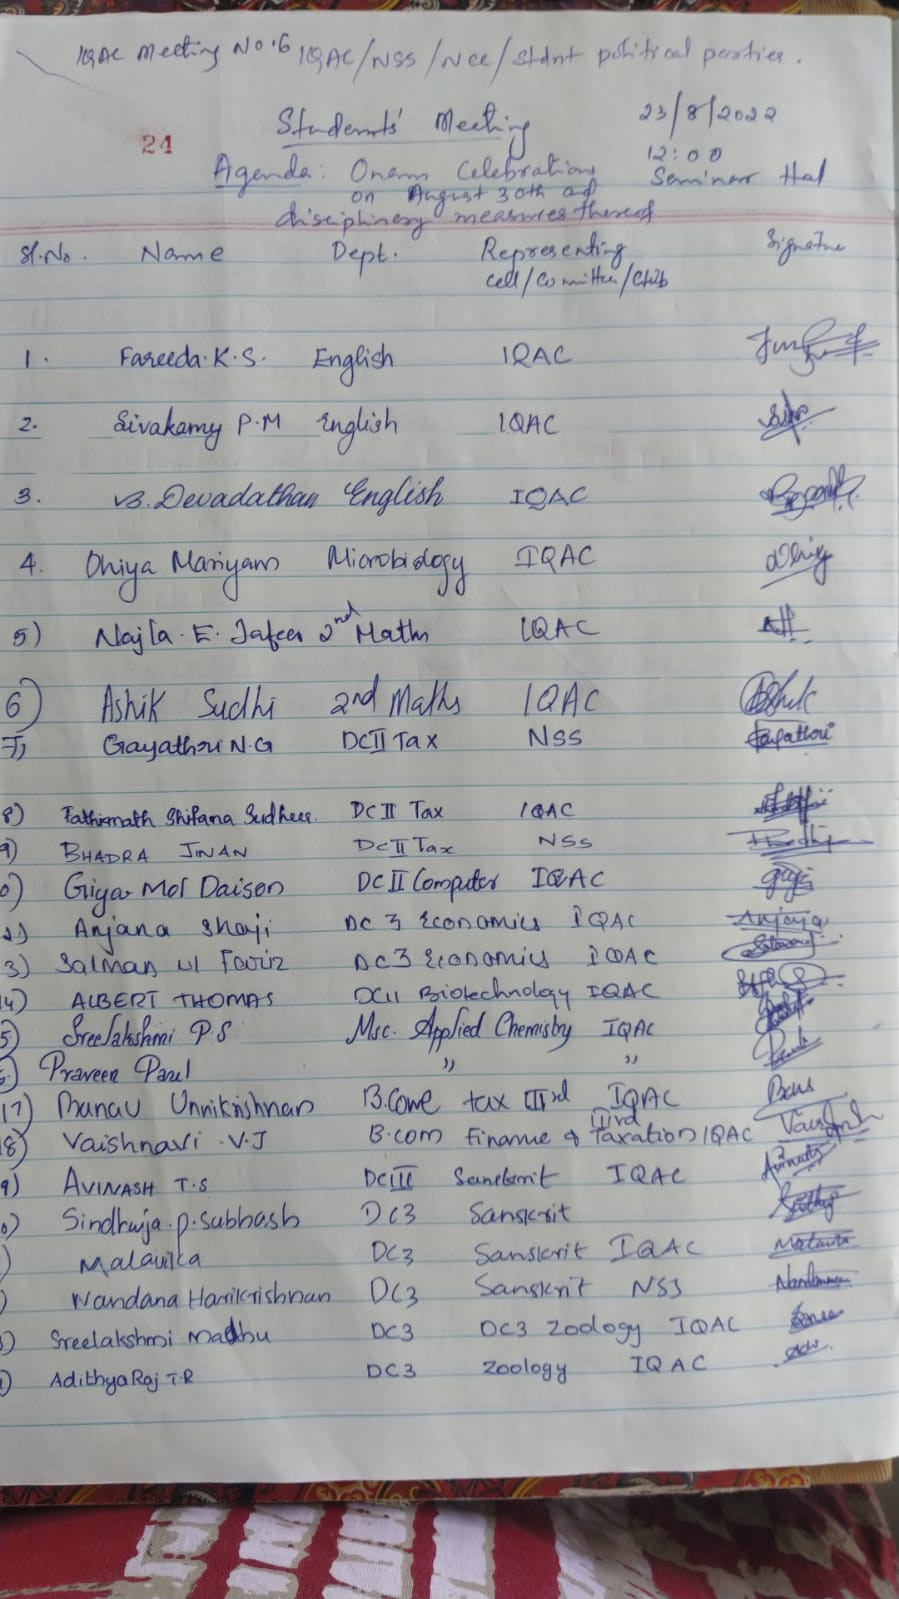 IQAC Meeting No:6 IQAC/NSS/NCC/Stdnt political parties.
24 Students' Meeting 23/8/2022
12:00
Agenda: Onam Celebrations Seminar Hal
on August 30th ad
disciplinery measures thereof
Sl.No. Name Dept. Representing Signatre
cell/Comittee/Club
1. Fareeda.K.S. English IQAC
2. Sivakamy P.M English IQAC
3. V.B. Devadathan English IQAC
4. Dhiya Mariyam Microbiology IQAC Dhiy
5) Najla.E.Jafeer 2nd Maths IQAC
6) Ashik Sudhi 2nd Maths IQAC Ashik
7) Gayathri N.G DCII Tax NSS Gayathri
8) Fathimath Shifana Sudheer. DC II Tax IQAC
9) BHADRA JINAN DCII Tax NSS
0) Giya Mol Daison DCII Computer IQAC
Anjana Shaji DC 3 Economics IQAC Anjana
3) Salman ul Fariz DC3 Economics IQAC
14) ALBERT THOMAS DCII Biotechnology IQAC
5) Sreelakshmi P S Msc. Applied Chemistry IQAC
Praveen Paul " "
17) Pranav Unnikrishnan B.Come tax IIIrd IQAC
18) Vaishnavi.V.J B.com Finance & Taxation IIIrd IQAC
9) AVINASH T.S DCIII Sanskrit IQAC
0) Sindhuja.p.subhash DC3 Sanskrit
) Malavika DC3 Sanskrit IQAC Malavika
) Nandana Harikrishnan DC3 Sanskrit NSS
) Sreelakshmi Madhu DC3 DC3 Zoology IQAC
) Adithya Raj T.R DC3 Zoology IQAC